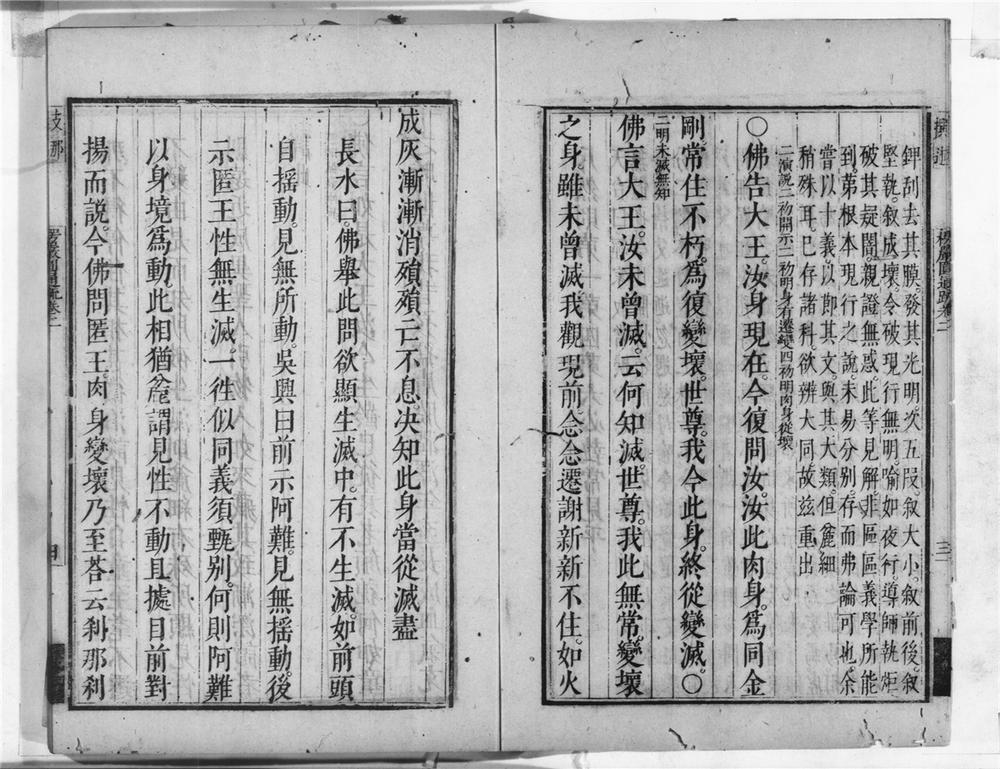 楞嚴圓通疏卷二
三
鉀刮去其膜發其光明次五叚。叙大小。叙前後。叙
堅執。叙成壞。令破現行無明。喻如夜行。導師執炬
破其疑闇。親證無惑。此等見解。非區區義學所能
到。苐根本現行之說未易分别。存而弗論可也。余
嘗以十義。以節其文。與其大類。但麄細
稍殊耳。巳存諸科。欲辨大同故兹重出
二演說二初開示二初明身有遷變四初明肉身從壞
○佛告大王。汝身現在。今復問汝。汝此肉身。爲同金
剛常住不朽。爲復變壞。世尊。我今此身。終從變滅。○
二明未滅無知
佛言大王。汝未曾滅。云何知滅。世尊。我此無常。變壞
之身。雖未曾滅我觀現前念念遷謝新新不住。如火
成灰漸漸消殞殞亡不息。决知此身當從滅盡
長水曰。佛舉此問欲顯生滅中。有不生滅。如前頭
自摇動。見無所動。吳興曰前示阿難。見無摇動。後
示匿王性無生滅。一徃似同義須甄别。何則阿難
以身境爲動。此相猶麄。謂見性不動且據目前對
揚而說。今佛問匿王。肉身變壞乃至荅云刹那刹